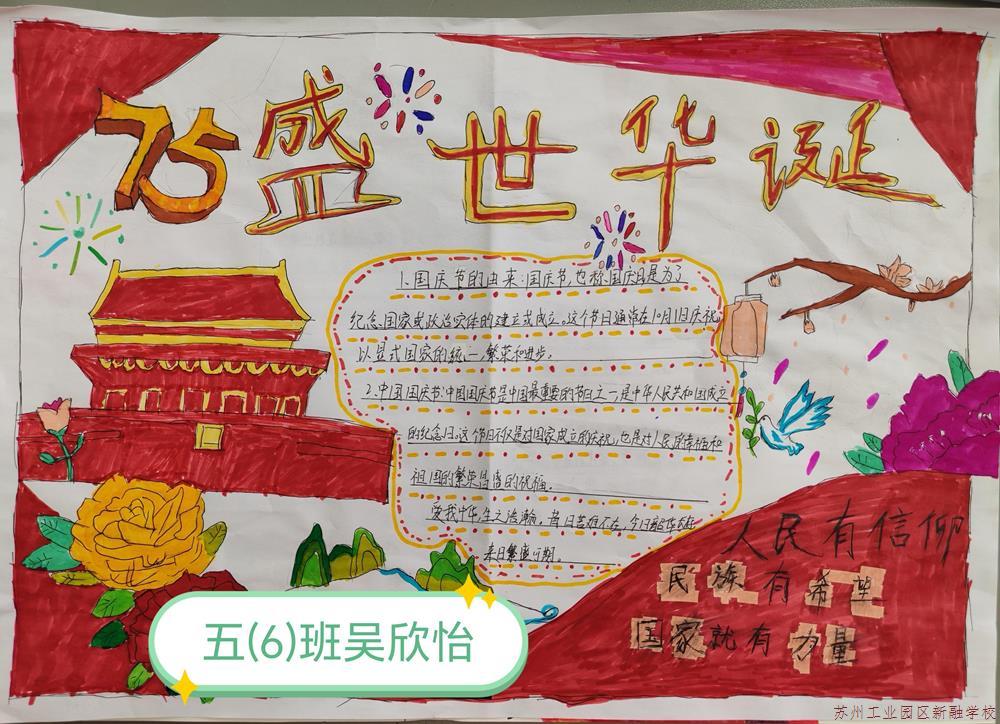 75盛世华诞
1.国庆节的由来:国庆节,也称国庆日是为了
纪念国家或政治实体的建立或成立。这个节日通常在10月1日庆祝,
以显式国家的统一繁荣和进步。
2.中国国庆节:中国国庆节是中国最重要的节日之一是中华人民共和国成立
的纪念日。这个节日不仅是对国家成立的庆祝,也是对人民幸福和
祖国的繁荣昌盛的祝福。
爱我中华,生之浩瀚。昔日苦难不在,今日
来日繁盛可期。
人民有信仰
民族有希望
国家就有力量
五(6)班吴欣怡
苏州工业园区新融学校